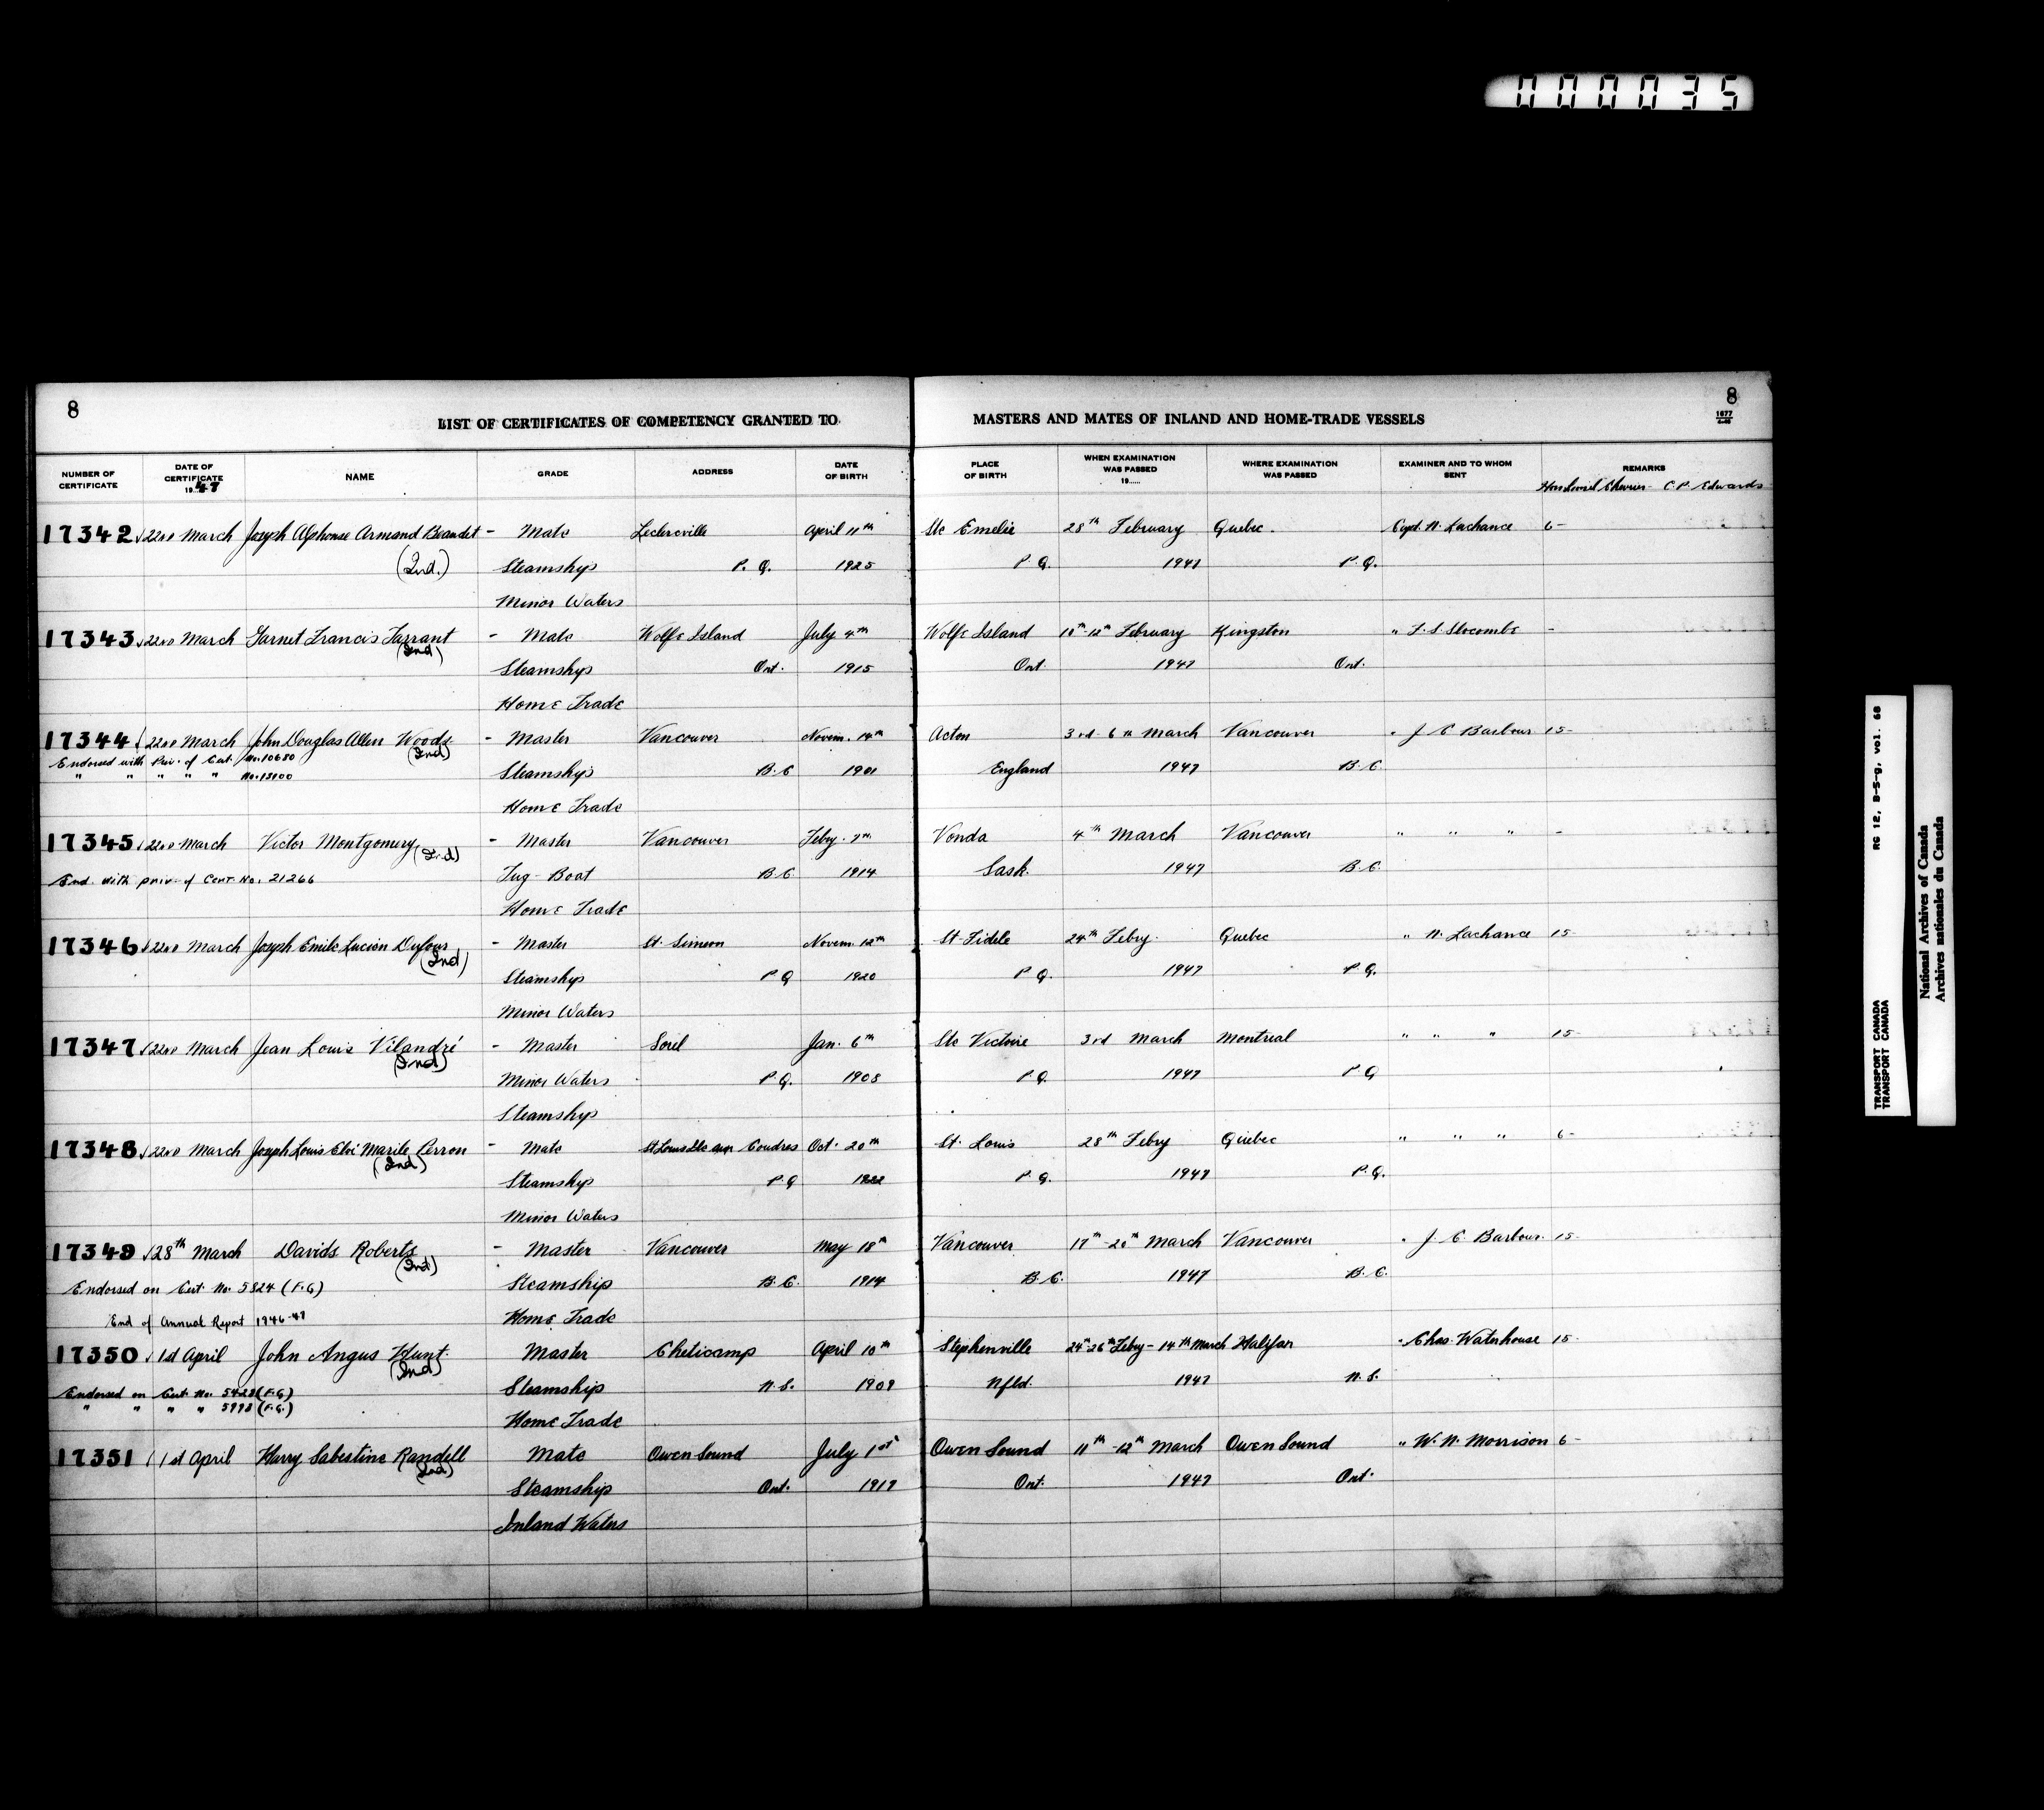 000035
8
LIST OF CERTIFICATES OF COMPETENCY GRANTED TO
MASTERS AND MATES OF INLAND AND HOME-TRADE VESSELS
8
1677
NUMBER OF CERTIFICATE
DATE OF CERTIFICATE 1947
NAME
GRADE
ADDRESS
DATE OF BIRTH
PLACE OF BIRTH
WHEN EXAMINATION WAS PASSED 19.....
WHERE EXAMINATION WAS PASSED
EXAMINER AND TO WHOM SENT
REMARKS
Hon Lionel Chevrier - C.P. Edwards
17342 22nd March Joseph Alphonse Armand Beaudet - Mate Leclercville April 11th Ste Emelie 28th February Quebec. Capt. N. Lachance 6-
(Ind.) Steamship P. Q. 1925 P. Q. 1947 P. Q.
Minor Waters
17343 22nd March Garnet Francis Tarrant - Mate Wolfe Island July 4th Wolfe Island 10th-12th February Kingston " F. S. Slocombe -
(Ind) Steamship Ont. 1915 Ont 1947 Ont.
Home Trade
17344 22nd March John Douglas Allen Woods - Master Vancouver Novem. 14th Acton 3rd-6th March Vancouver " J E Barbour 15-
Endorsed with Priv. of Cert. No. 10680 (Ind) Steamship B.C 1901 England 1947 B.C.
" " " " " No. 13100
Home Trade
17345 22nd March Victor Montgomery (Ind) - Master Vancouver Feby. 7th Vonda 4th March Vancouver " " " -
End. with priv. of Cert. No. 21266 Tug-Boat B.C 1914 Sask. 1947 B.C.
Home Trade
17346 22nd March Joseph Emile Lucien Dufour - Master St. Simeon Novem. 12th St. Fidele 24th Feby. Quebec " N. Lachance 15-
(Ind) Steamship P Q 1920 P Q. 1947 P. Q.
Minor Waters
17347 22nd March Jean Louis Vilandré - Master Sorel Jan. 6th Ste Victoire 3rd March Montreal " " " 15-
(Ind) Minor Waters P.Q. 1908 P.Q. 1947 P Q
Steamship
17348 22nd March Joseph Louis Eloi Marile Perron - Mate St Louis Ile aux Coudres Oct. 20th St. Louis 28th Feby Quebec " " " 6-
(Ind) Steamship P.Q 1922 P. Q. 1947 P. Q.
Minor Waters
17349 28th March Davids Roberts - Master Vancouver May 18th Vancouver 17th-20th March Vancouver " J E Barbour 15-
(Ind)
Endorsed on Cert. No. 5824 (F.G) Steamship B.C. 1914 B.C. 1947 B.C.
End of Annual Report 1946-47 Home Trade
17350 1st April John Angus Hunt Master Cheticamp April 10th Stephenville 24th-26th Feby - 14th March Halifax " Chas. Waterhouse 15-
(Ind)
Endorsed on Cert. No. 5428 (F.G) Steamship N.S. 1909 Nfld. 1947 N.S.
" " " " 5998 (F.G.) Home Trade
17351 1st April Harry Sabestine Randell Mate Owen Sound July 1st Owen Sound 11th-12th March Owen Sound " W. N. Morrison 6-
(Ind) Steamship Ont. 1919 Ont. 1947 Ont.
Inland Waters
RG 12, B-5-g, vol. 60
TRANSPORT CANADA
TRANSPORT CANADA
National Archives of Canada
Archives nationales du Canada